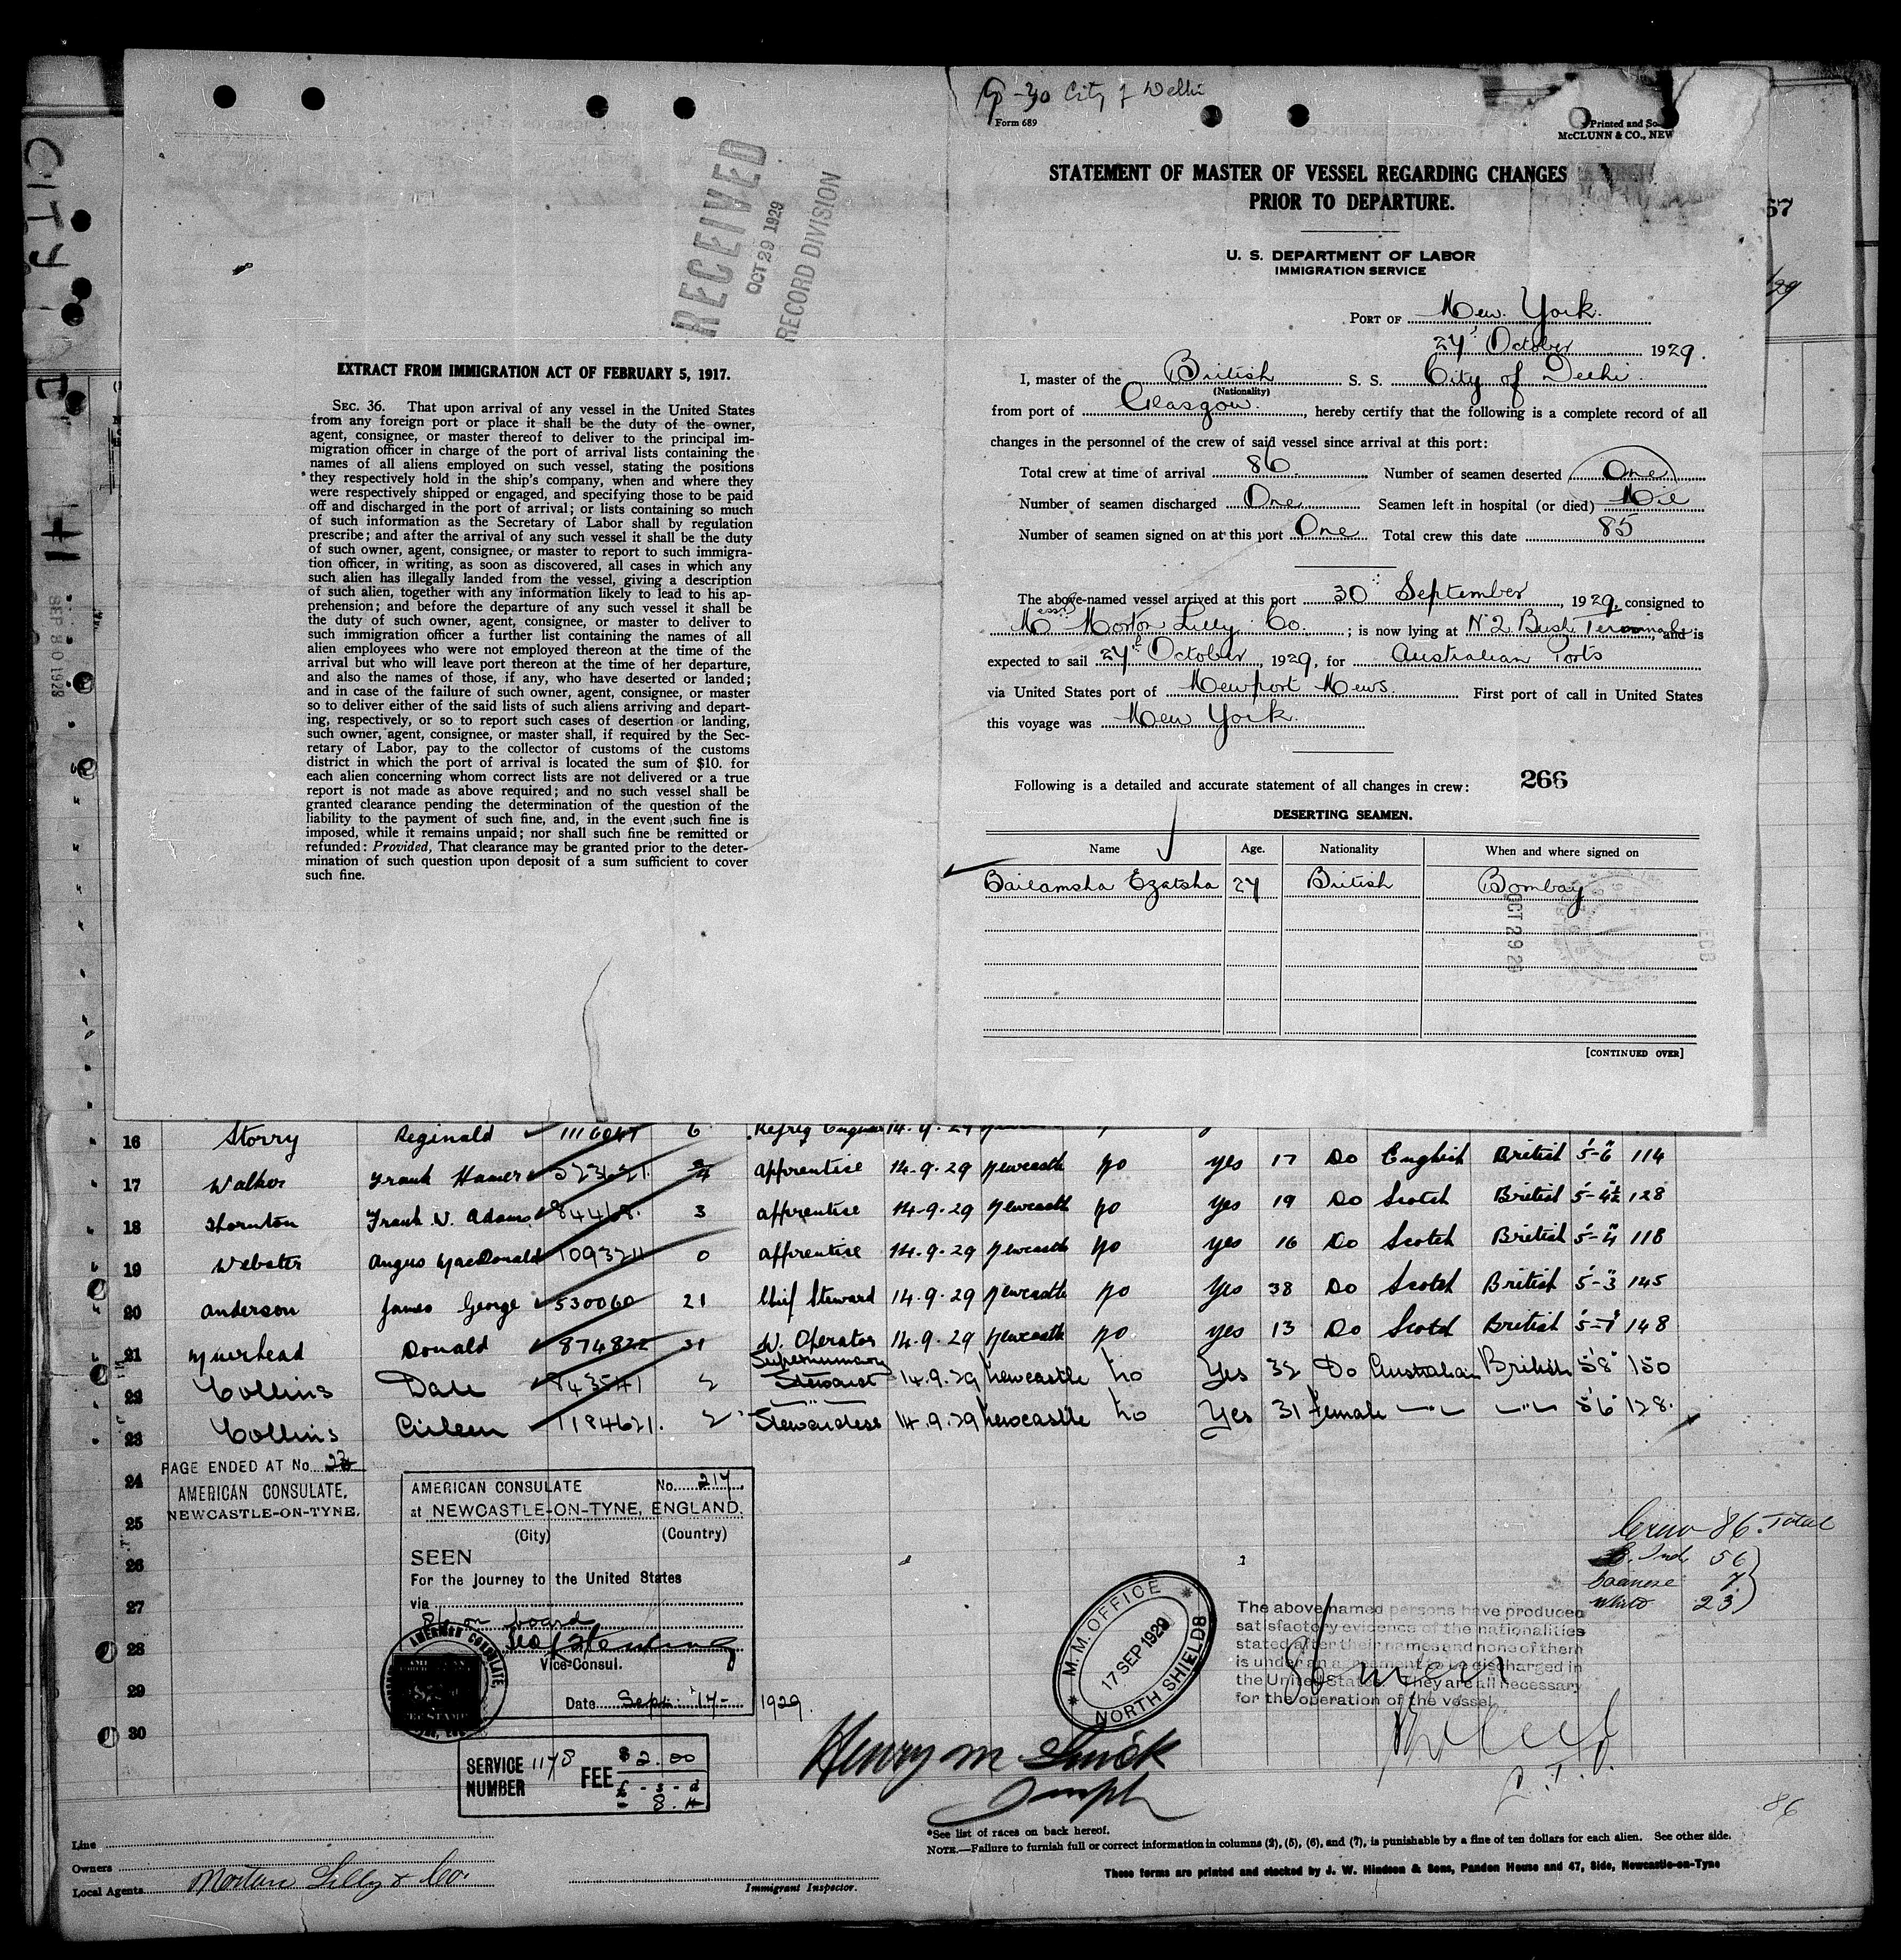 City of Delhi
Form 689
Printed and So
McCLUNN & CO., NEW
STATEMENT OF MASTER OF VESSEL REGARDING CHANGES
PRIOR TO DEPARTURE.
U. S. DEPARTMENT OF LABOR
IMMIGRATION SERVICE
PORT OF New York.
24 October 1929.
I, master of the British S. S. City of Delhi.
(Nationality)
from port of Glasgow., hereby certify that the following is a complete record of all
changes in the personnel of the crew of said vessel since arrival at this port:
Total crew at time of arrival 86. Number of seamen deserted One
Number of seamen discharged One Seamen left in hospital (or died) Nil
Number of seamen signed on at this port One Total crew this date 85
The above-named vessel arrived at this port 30 September, 1929, consigned to
Messrs Morton Lilly Co.; is now lying at No 2 Bush Terminal, and is
expected to sail 24th October, 1929, for Australian Ports
via United States port of Newport News. First port of call in United States
this voyage was New York.
Following is a detailed and accurate statement of all changes in crew: 266
DESERTING SEAMEN.
Name Age. Nationality When and where signed on
Bailamsha Ezatsha 24 British Bombay
OCT 29 29
[CONTINUED OVER]
RECEIVED
OCT 29 1929
RECORD DIVISION
EXTRACT FROM IMMIGRATION ACT OF FEBRUARY 5, 1917.
SEC. 36. That upon arrival of any vessel in the United States
from any foreign port or place it shall be the duty of the owner,
agent, consignee, or master thereof to deliver to the principal im-
migration officer in charge of the port of arrival lists containing the
names of all aliens employed on such vessel, stating the positions
they respectively hold in the ship's company, when and where they
were respectively shipped or engaged, and specifying those to be paid
off and discharged in the port of arrival; or lists containing so much
of such information as the Secretary of Labor shall by regulation
prescribe; and after the arrival of any such vessel it shall be the duty
of such owner, agent, consignee, or master to report to such immigra-
tion officer, in writing, as soon as discovered, all cases in which any
such alien has illegally landed from the vessel, giving a description
of such alien, together with any information likely to lead to his ap-
prehension; and before the departure of any such vessel it shall be
the duty of such owner, agent, consignee, or master to deliver to
such immigration officer a further list containing the names of all
alien employees who were not employed thereon at the time of the
arrival but who will leave port thereon at the time of her departure,
and also the names of those, if any, who have deserted or landed;
and in case of the failure of such owner, agent, consignee, or master
so to deliver either of the said lists of such aliens arriving and depart-
ing, respectively, or so to report such cases of desertion or landing,
such owner, agent, consignee, or master shall, if required by the Sec-
retary of Labor, pay to the collector of customs of the customs
district in which the port of arrival is located the sum of $10. for
each alien concerning whom correct lists are not delivered or a true
report is not made as above required; and no such vessel shall be
granted clearance pending the determination of the question of the
liability to the payment of such fine, and, in the event such fine is
imposed, while it remains unpaid; nor shall such fine be remitted or
refunded: Provided, That clearance may be granted prior to the deter-
mination of such question upon deposit of a sum sufficient to cover
such fine.
16 Storry Reginald 6 Refrig Engineer 14.9.29
17 Walker Frank Hamer 14-9-29 apprentice Newcastle No yes 17 Do English British 5-6 114
18 Thornton Frank W. Adams 84468. 3 apprentice 14-9-29 Newcastle No yes 19 Do Scotch British 5-4½ 128
19 Webster Angus MacDonald 0 apprentice 14.9.29 Newcastle No yes 16 Do Scotch British 5-4 118
20 Anderson James George 530060 21 Chief Steward 14.9.29 Newcastle No Yes 38 Do Scotch British 5-3 145
21 Muirhead Donald 874822 31 W. Operator 14-9-29 Newcastle No. yes 13 Do Scotch British 148
Supernumary
22 Collins Dale 843541 2 Steward 14.9.29 Newcastle No Yes 32 Do Australian British 5'8" 150
23 Collins Eileen 1184621. 2 Stewardess 14.9.29 Newcastle No Yes 31 Female 5'6 128.
24
25
26
27
28
29
30
PAGE ENDED AT No 23
AMERICAN CONSULATE,
NEWCASTLE-ON-TYNE.
AMERICAN CONSULATE No. 217
at NEWCASTLE-ON-TYNE, ENGLAND.
(City) (Country)
SEEN
For the journey to the United States
via
on board
Vice-Consul.
Date Sept. 17- 1929.
AMERICAN CONSULATE,
SERVICE NUMBER 1178 FEE $2.00
£ - s - d
- 8. 4
M.M. OFFICE
17 SEP 1929
NORTH SHIELDS
Crew 86. Total
56
7
White 23
The above named persons have produced
satisfactory evidence of the nationalities
stated after their names and none of them
is under an agreement to be discharged in
the United States. They are all necessary
for the operation of the vessel.
Henry M
86
Line
Owners
Local Agents Morton Lilly & Co.
Immigrant Inspector.
*See list of races on back hereof.
NOTE.—Failure to furnish full or correct information in columns (2), (5), (6), and (7), is punishable by a fine of ten dollars for each alien. See other side.
These forms are printed and stocked by J. W. Hindson & Sons, Pandon House and 47, Side, Newcastle-on-Tyne